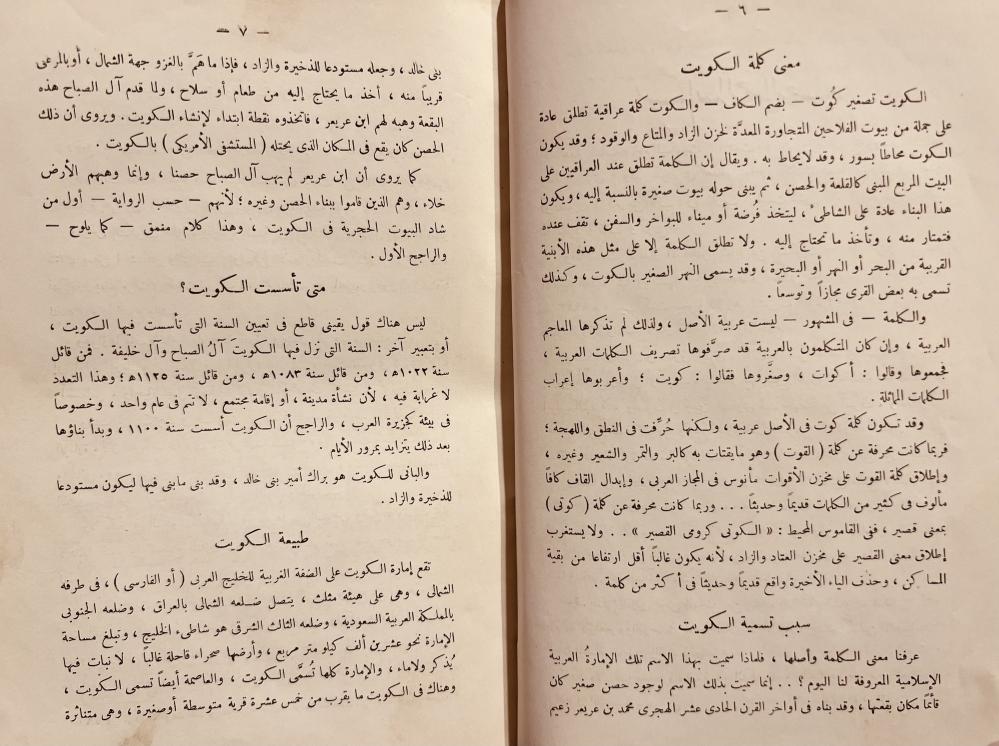 — ٦ —
معنى كلمة الكويت
الكويت تصغير كُوت — بضم الكاف — والكوت كلمة عراقية تطلق عادة
على جملة من بيوت الفلاحين المتجاورة المعدَّة لخزن الزاد والمتاع والوقود ؛ وقد يكون
الكوت محاطاً بسور ، وقد لايحاط به . ويقال إن الكلمة تطلق عند العراقيين على
البيت المربع المبنى كالقلعة والحصن ، ثم يبنى حوله بيوت صغيرة بالنسبة إليه ، ويكون
هذا البناء عادة على الشاطىء ، ليتخذ فُرضة أو ميناء للبواخر والسفن ، تقف عنده
فتمتار منه ، وتأخذ ما تحتاج إليه . ولا تطلق الكلمة إلا على مثل هذه الأبنية
القريبة من البحر أو النهر أو البحيرة ، وقد يسمى النهر الصغير بالكوت ، وكذلك
تسمى به بعض القرى مجازاً وتوسعاً .
والكلمة — فى المشهور — ليست عربية الأصل ، ولذلك لم تذكرها المعاجم
العربية ، وإن كان المتكلمون بالعربية قد صرَّفوها تصريف الكلمات العربية ،
فجمعوها وقالوا : أكوات ، وصغَّروها فقالوا : كويت ؛ وأعربوها إعراب
الكلمات المماثلة .
وقد تكون كلمة كوت فى الأصل عربية ، ولكنها حُرِّفت فى النطق واللهجة ؛
فربما كانت محرفة عن كلمة ( القوت ) وهو مايقتات به كالبر والتمر والشعير وغيره ،
وإطلاق كلمة القوت على مخزن الأقوات مأنوس فى المجاز العربى ، وإبدال القاف كافاً
مألوف فى كثير من الكلمات قديماً وحديثاً . . . وربما كانت محرفة عن كلمة ( كوتى )
بمعنى قصير ، ففى القاموس المحيط : « الكوتى كرومى القصير » . . ولا يستغرب
إطلاق معنى القصير على مخزن العتاد والزاد ، لأنه يكون غالباً أقل ارتفاعا من بقية
المساكن ، وحذف الياء الأخيرة واقع قديماً وحديثاً فى أكثر من كلمة .
سبب تسمية الكويت
عرفنا معنى الكلمة وأصلها ، فلماذا سميت بهذا الاسم تلك الإمارة العربية
الإسلامية المعروفة لنا اليوم ؟ . . إنما سميت بذلك الاسم لوجود حصن صغير كان
قائماً مكان بقعتها ، وقد بناه فى أواخر القرن الحادى عشر الهجرى محمد بن عريعر زعيم
— ٧ —
بنى خالد ، وجعله مستودعا للذخيرة والزاد ، فإذا ما هَمَّ بالغزو جهة الشمال ، أوبالمرعى
قريباً منه ، أخذ ما يحتاج إليه من طعام أو سلاح ، ولما قدم آل الصباح هذه
البقعة وهبه لهم ابن عريعر ، فاتخذوه نقطة ابتداء لإنشاء الكويت . ويروى أن ذلك
الحصن كان يقع فى المكان الذى يحتله ( المستشفى الأمريكى ) بالكويت .
كما يروى أن ابن عريعر لم يهب آل الصباح حصنا ، وإنما وهبهم الأرض
خلاء ، وهم الذين قاموا ببناء الحصن وغيره ؛ لأنهم — حسب الرواية — أول من
شاد البيوت الحجرية فى الكويت ، وهذا كلام منمق — كما يلوح —
والراجح الأول .
متى تأسست الكويت ؟
ليس هناك قول يقينى قاطع فى تعيين السنة التى تأسست فيها الكويت ،
أو بتعبير آخر : السنة التى نزل فيها الكويتَ آلُ الصباح وآل خليفة . فمن قائل
سنة ١٠٢٢ه ، ومن قائل سنة ١٠٨٣ه ، ومن قائل سنة ١١٢٥ه ؛ وهذا التعدد
لا غرابة فيه ، لأن نشأة مدينة ، أو إقامة مجتمع ، لا تتم فى عام واحد ، وخصوصاً
فى بيئة كجزيرة العرب ، والراجح أن الكويت أسست سنة ١١٠٠ ، وبدأ بناؤها
بعد ذلك يتزايد بمرور الأيام .
والبانى للكويت هو براك أمير بنى خالد ، وقد بنى مابنى فيها ليكون مستودعا
للذخيرة والزاد .
طبيعة الكويت
تقع إمارة الكويت على الضفة الغربية للخليج العربى ( أو الفارسى ) ، فى طرفه
الشمالى ، وهى على هيئة مثلث ، يتصل ضلعه الشمالى بالعراق ، وضلعه الجنوبى
بالمملكة العربية السعودية ، وضلعه الثالث الشرقى هو شاطىء الخليج ، وتبلغ مساحة
الإمارة نحو عشرين ألف كيلو متر مربع ، وأرضها صحراء قاحلة غالباً ، لا نبات فيها
يُذكر ولاماء ، والإمارة كلها تُسمَّى الكويت ، والعاصمة أيضاً تسمى الكويت ،
وهناك فى الكويت ما يقرب من خمس عشرة قرية متوسطة أوصغيرة ، وهى متناثرة